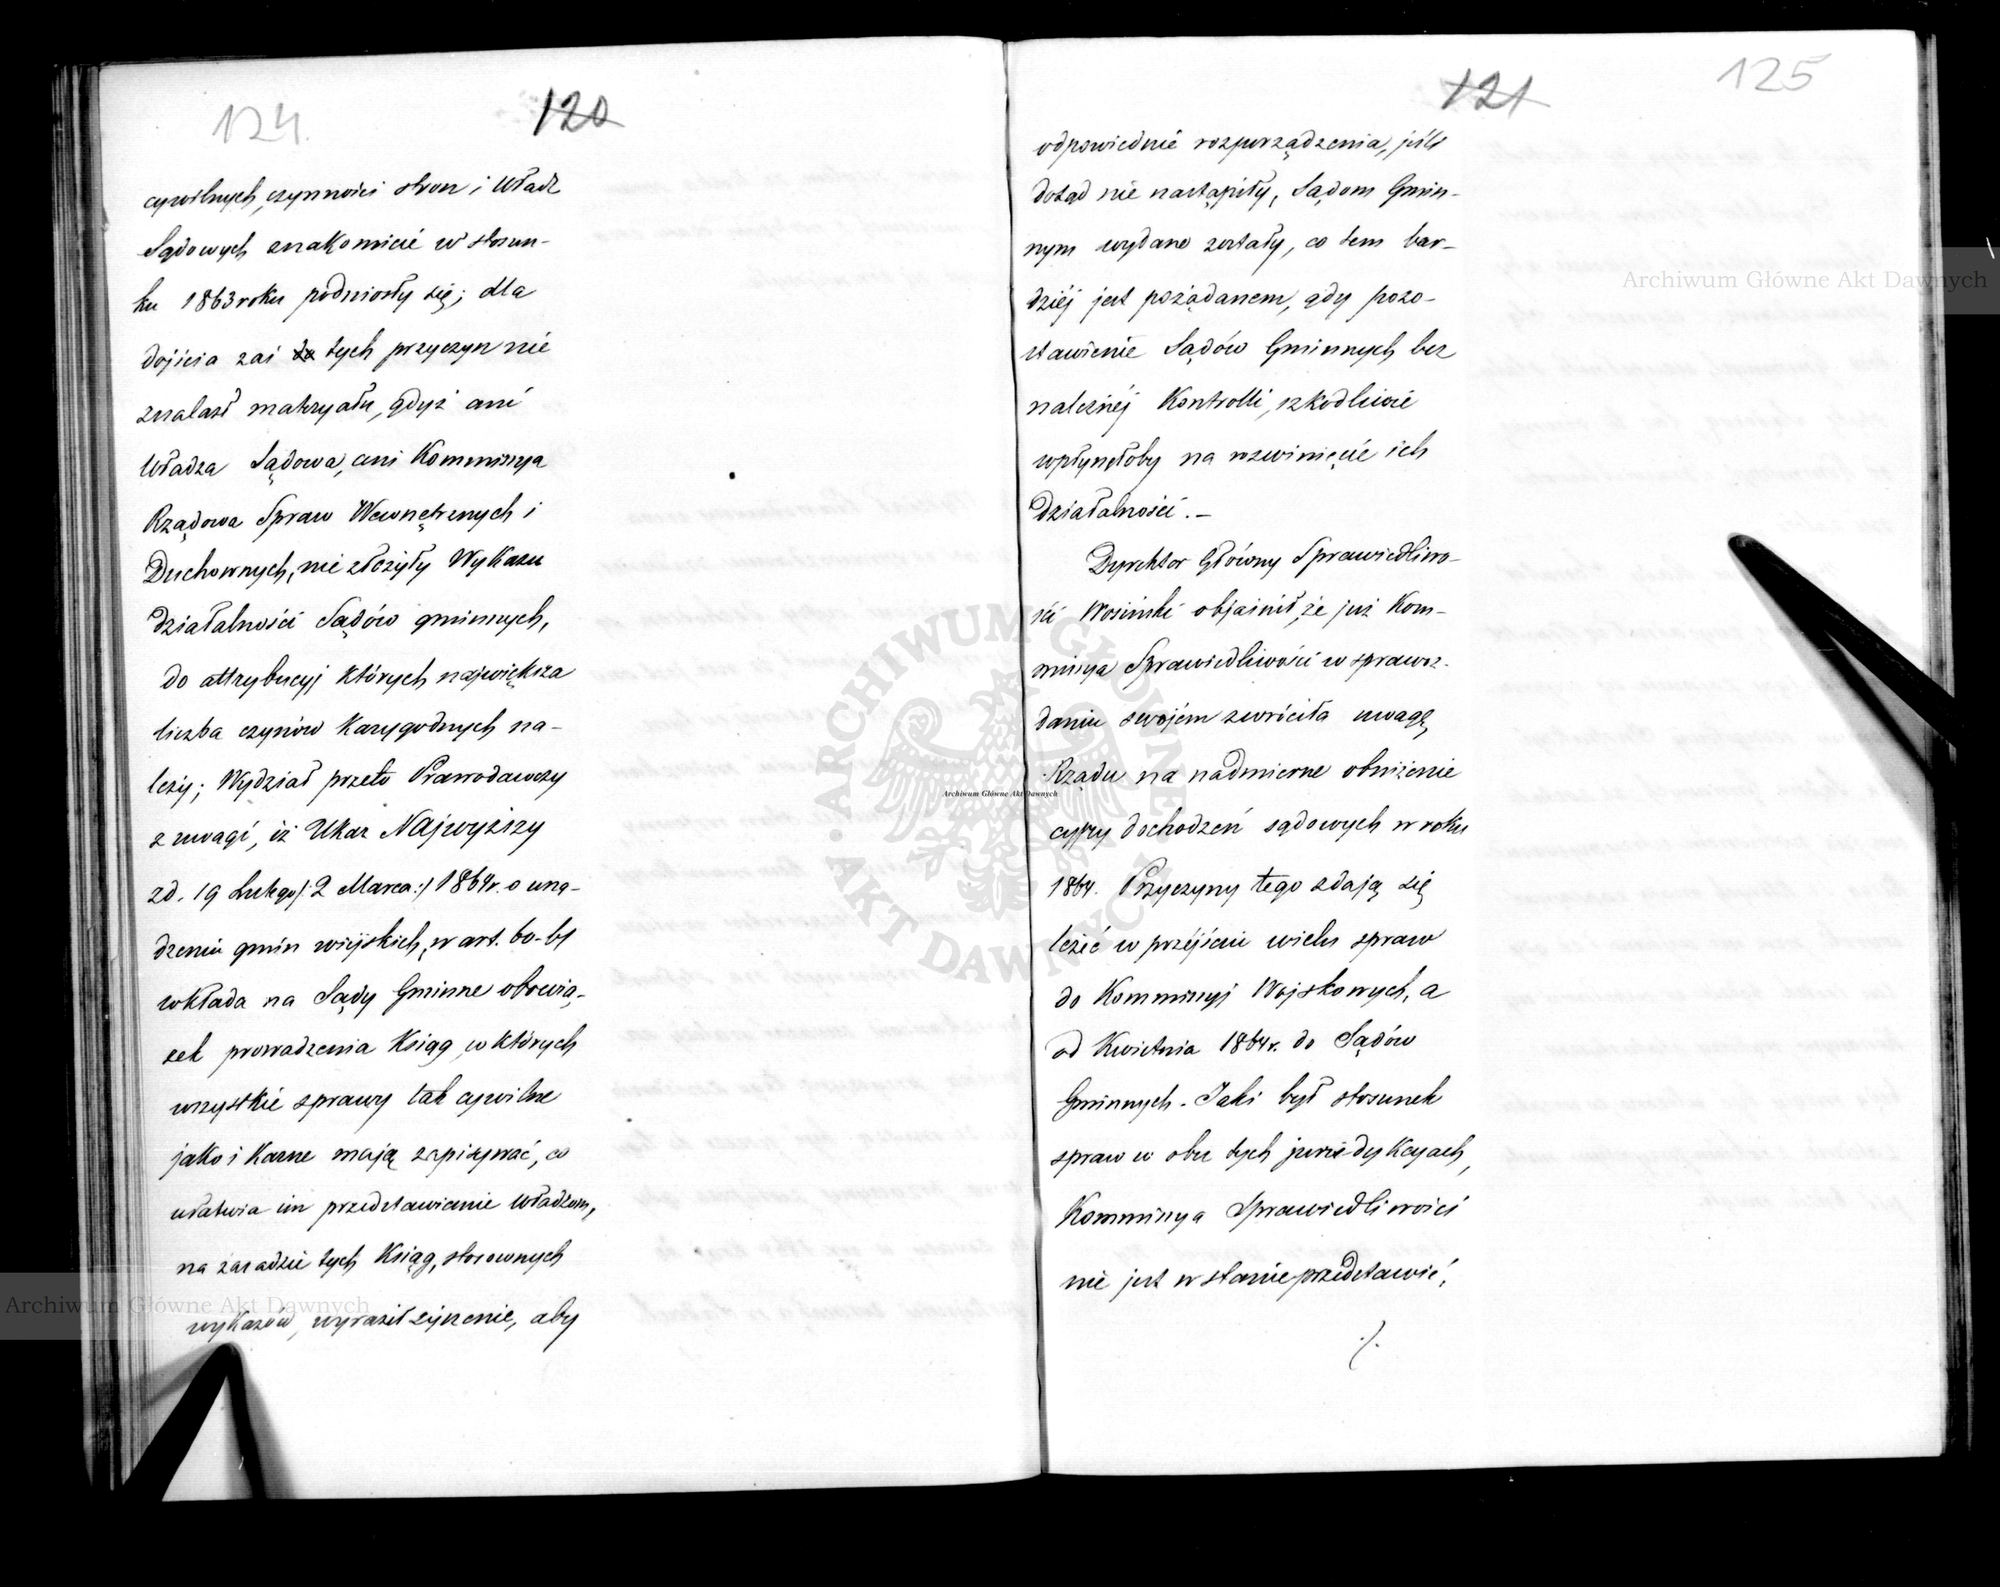 124.
120
cywilnych, czynności stron i Władz
Sądowych znakomicie w stosun-
ku 1863 roku podniosły się; dla
dojścia zaś do tych przyczyn nie
znalazł materyału, gdyż ani
Władza Sądowa, ani Kommissya
Rządowa Spraw Wewnętrznych i
Duchownych, nie złożyły Wykazu
działalności Sądów gminnych,
do attrybucyj których największa
liczba czynów Karygodnych na-
leży; Wydział przeto Prawodawczy
z uwagi, iż Ukaz Najwyższy
zd. 19 Lutego /: 2 Marca :/ 1864 r. o urzą-
dzeniu gmin wiejskich, w art. 60-61
wkłada na Sądy Gminne obowią-
zek prowadzenia Ksiąg w których
wszystkie sprawy tak cywilne
jako i Karne mają zapisywać, co
ułatwia im przedstawianie Władzom,
na zasadzie tych Ksiąg, stosownych
wykazów, wyraził życzenie, aby
121
125
odpowiednie rozporządzenia, jeśli
dotąd nie nastąpiły, Sądom Gmin-
nym wydane zostały, co tem bar-
dziéj jest pożądanem, gdy pozo-
stawienie Sądów Gminnych bez
należnéj Kontrolli, szkodliwie
wpłynęłoby na rozwinięcie ich
działalności. -
Dyrektor Główny Sprawiedliwo-
ści Wosiński objaśnił, że już Kom-
missya Sprawiedliwości w sprawoz-
daniu swojém zwróciła uwagę
Rządu na nadmierne obniżenie
cyfry dochodzeń sądowych w roku
1864. Przyczyny tego zdają się
leżeć w przejściu wielu spraw
do Kommissyj Wojskowych, a
od Kwietnia 1864 r. do Sądów
Gminnych. Jaki był stosunek
spraw w obu tych jurisdykcyach,
Kommissya Sprawiedliwości
nie jest w stanie przedstawić;
./.
Archiwum Główne Akt Dawnych
Archiwum Główne Akt Dawnych
Archiwum Główne Akt Dawnych
ARCHIWUM GŁÓWNE AKT DAWNYCH